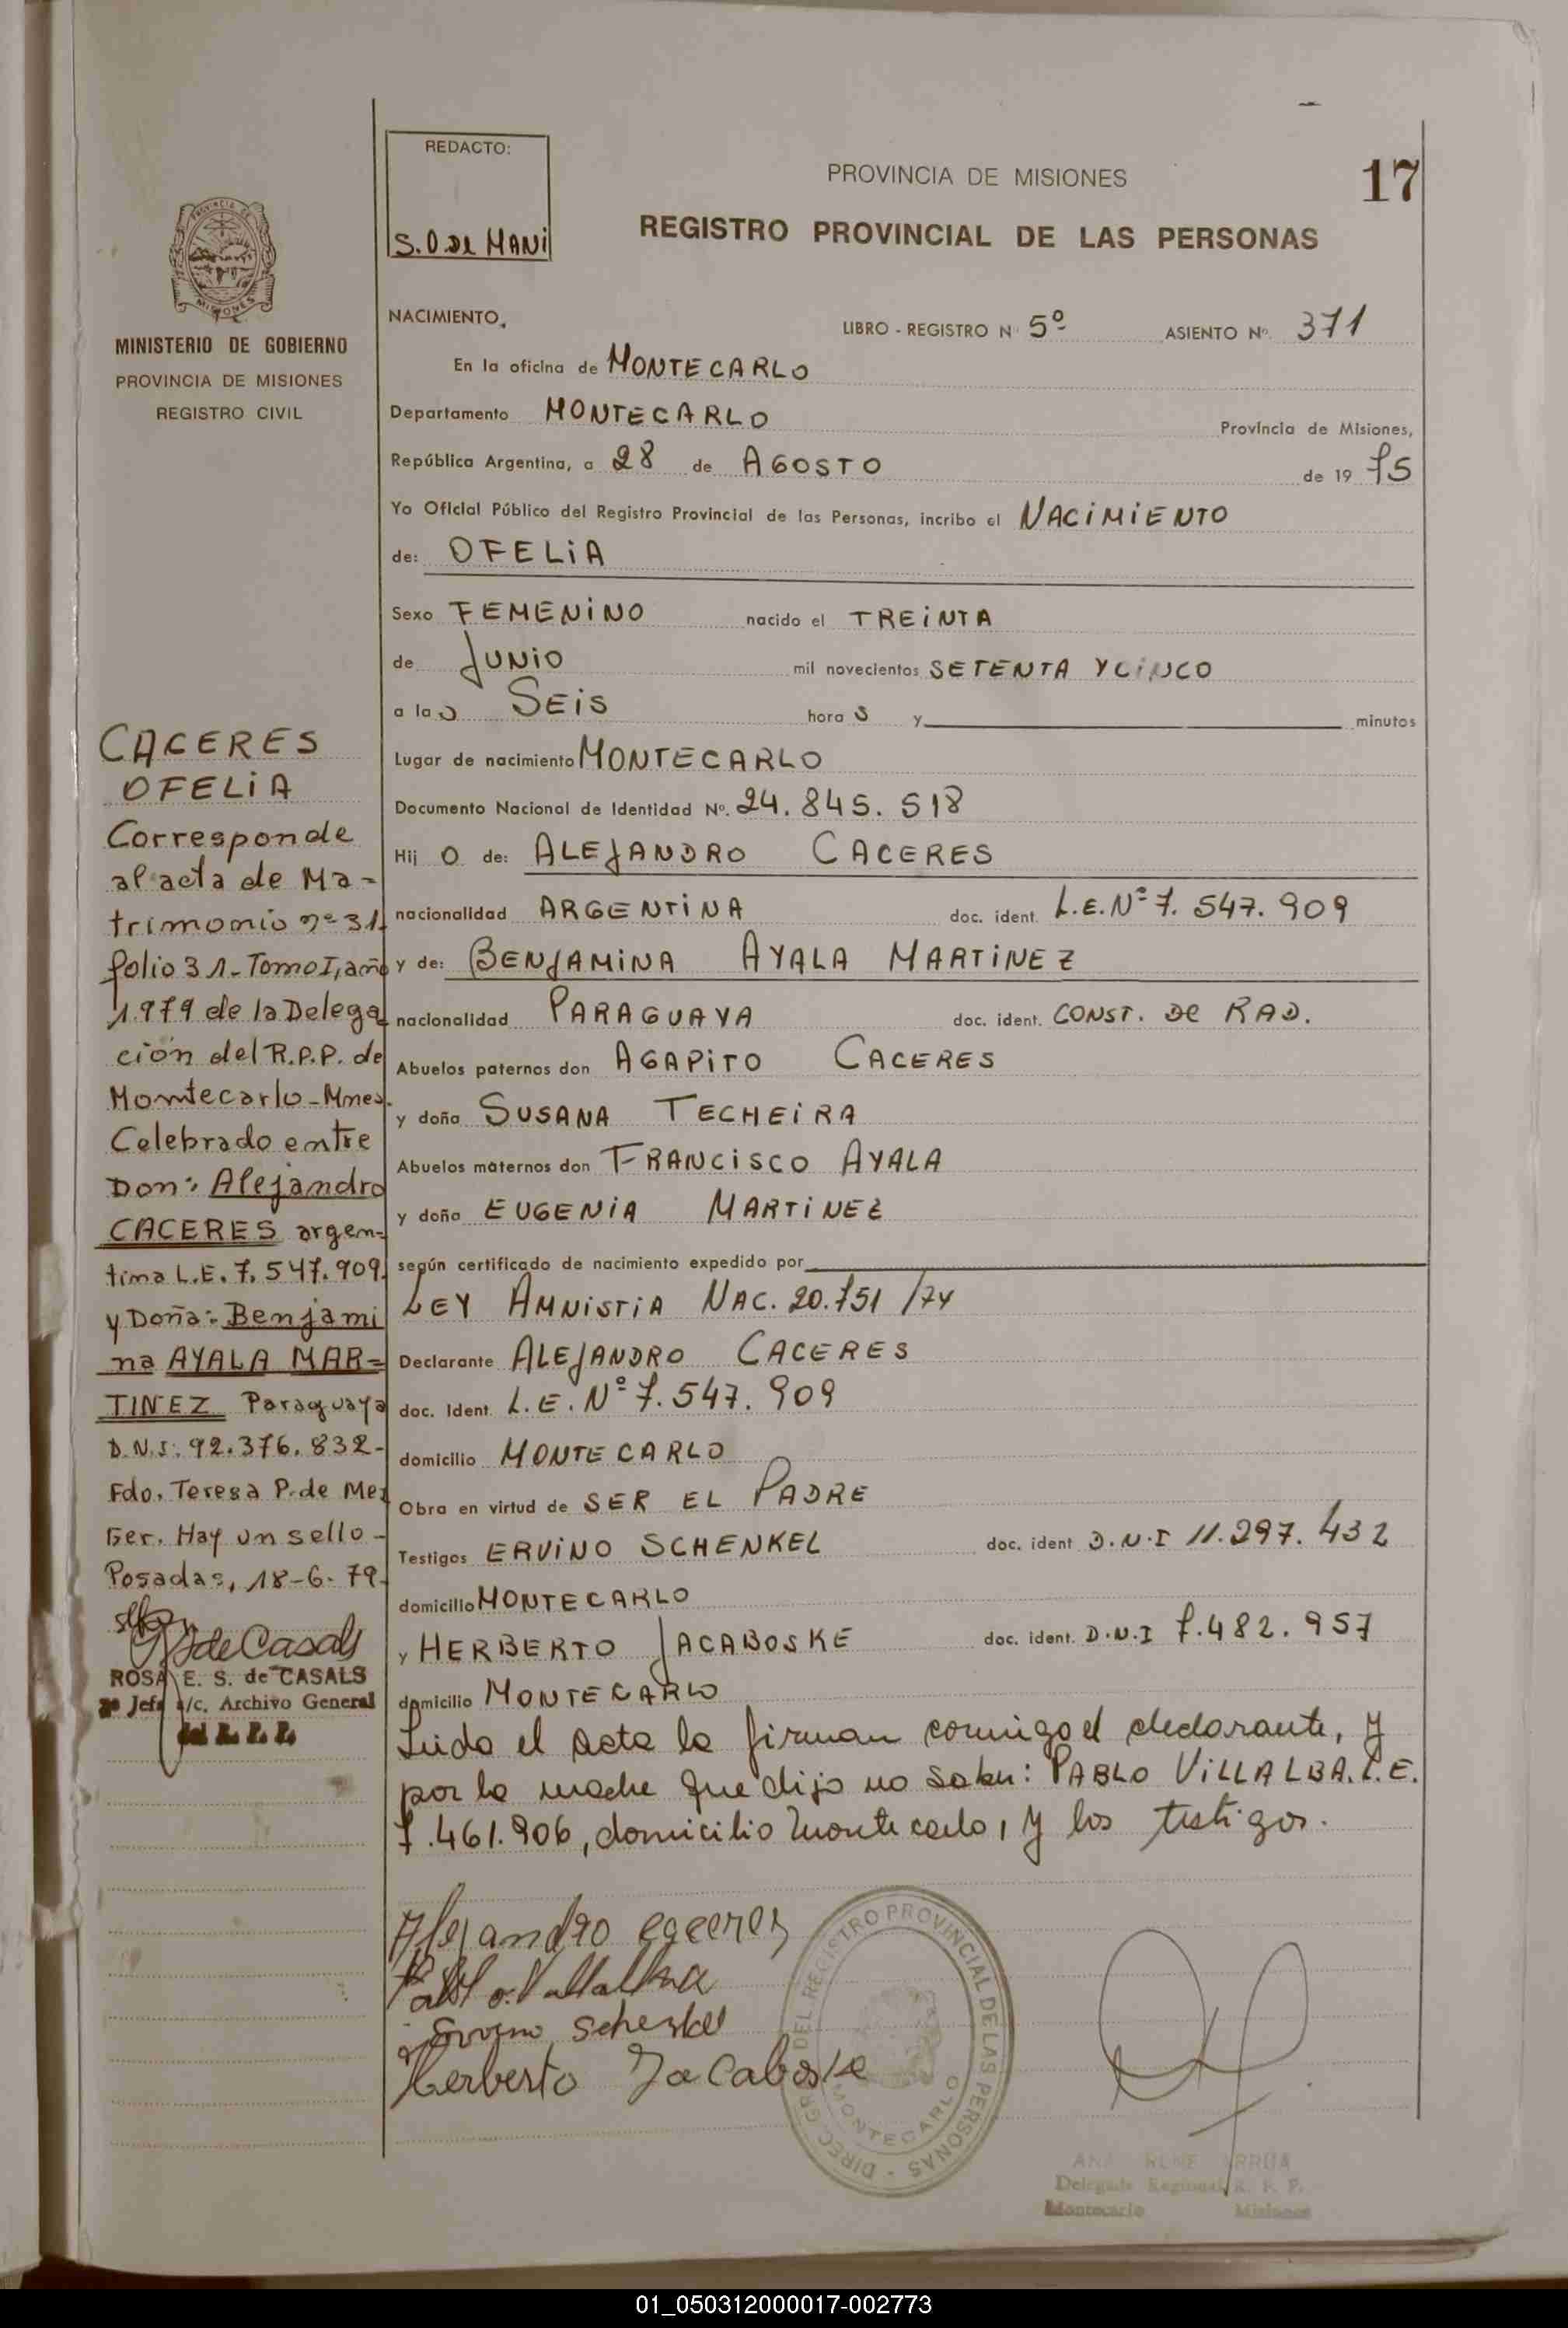 REDACTO:
S.O. DE MANI
PROVINCIA DE MISIONES
17
REGISTRO PROVINCIAL DE LAS PERSONAS
PROVINCIA DE
MISIONES
MINISTERIO DE GOBIERNO
PROVINCIA DE MISIONES
REGISTRO CIVIL
NACIMIENTO.
LIBRO - REGISTRO N 5º ASIENTO Nº. 371
En la oficina de MONTECARLO
Departamento MONTECARLO Provincia de Misiones,
República Argentina, a 28 de AGOSTO de 19 75
Yo Oficial Público del Registro Provincial de las Personas, incribo el NACIMIENTO
de: OFELIA
Sexo FEMENINO nacido el TREINTA
de JUNIO mil novecientos SETENTA Y CINCO
a las SEIS horas y minutos
Lugar de nacimiento MONTECARLO
Documento Nacional de Identidad Nº. 24.845.518
Hij O de: ALEJANDRO CACERES
nacionalidad ARGENTINA doc. ident. L.E.Nº 7.547.909
y de: BENJAMINA AYALA MARTINEZ
nacionalidad PARAGUAYA doc. ident. CONST. DE RAD.
Abuelos paternos don AGAPITO CACERES
y doña SUSANA TECHEIRA
Abuelos maternos don FRANCISCO AYALA
y doña EUGENIA MARTINEZ
según certificado de nacimiento expedido por
LEY AMNISTIA NAC. 20.751/74
Declarante ALEJANDRO CACERES
doc. Ident. L.E.Nº 7.547.909
domicilio MONTECARLO
Obra en virtud de SER EL PADRE
Testigos ERVINO SCHENKEL doc. ident D.N.I 11.297.432
domicilio MONTECARLO
y HERBERTO JACABOSKE doc. ident. D.N.I 7.482.957
domicilio MONTECARLO
Leida el acta la firman conmigo el declarante, y
por la madre que dijo no saber: PABLO VILLALBA. L.E.
7.461.906, domicilio Montecarlo, y los testigos.
CACERES
OFELIA
Corresponde
al acta de Ma-
trimonio nº 31
folio 31-Tomo I, año
1.979 de la Delega
ción del R.P.P. de
Montecarlo-Mnes.
Celebrado entre
Don: Alejandro
CACERES argen-
tina L.E. 7.547.909
y Doña: Benjami
na AYALA MAR=
TINEZ Paraguaya
D.N.I: 92.376.832-
Fdo. Teresa P. de Mez
Ger. Hay un sello-
Posadas, 18-6-79-
de Casals
ROSA E. S. de CASALS
Jefe a/c. Archivo General
del R. P. P.
Alejandro caceres
Pablo Villalba
Ervino Schenkel
Herberto Jacaboske
DIREC. GRAL. DEL REGISTRO PROVINCIAL DE LAS PERSONAS -
MONTECARLO
ANA RENE ARRUA
Delegada Regional R. P. P.
Montecarlo Misiones
01_050312000017-002773